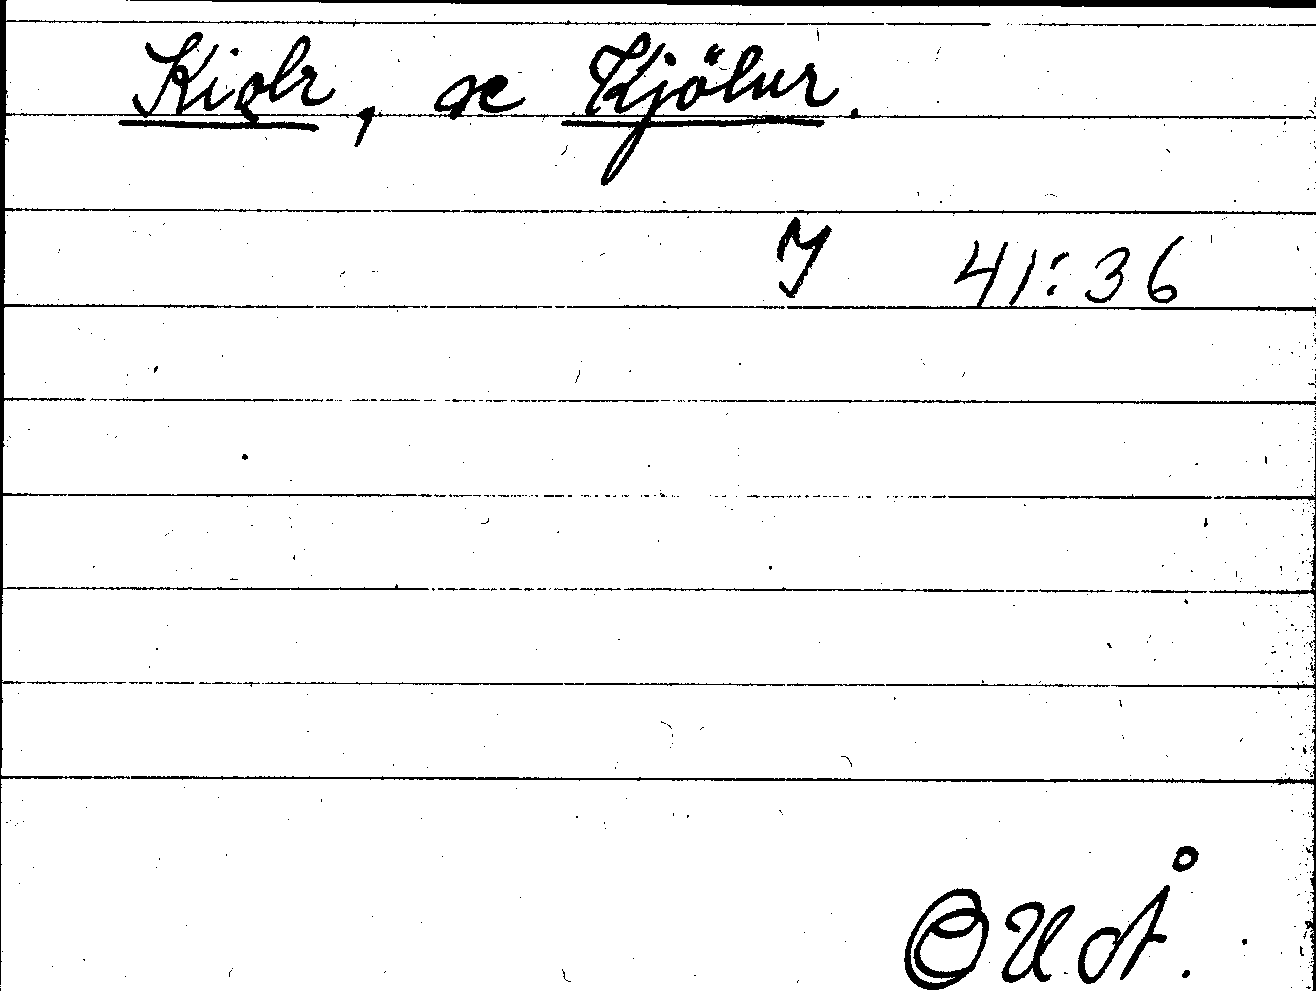 Kiǫlr, se Kjölur.
I 41:36
OUÅ.